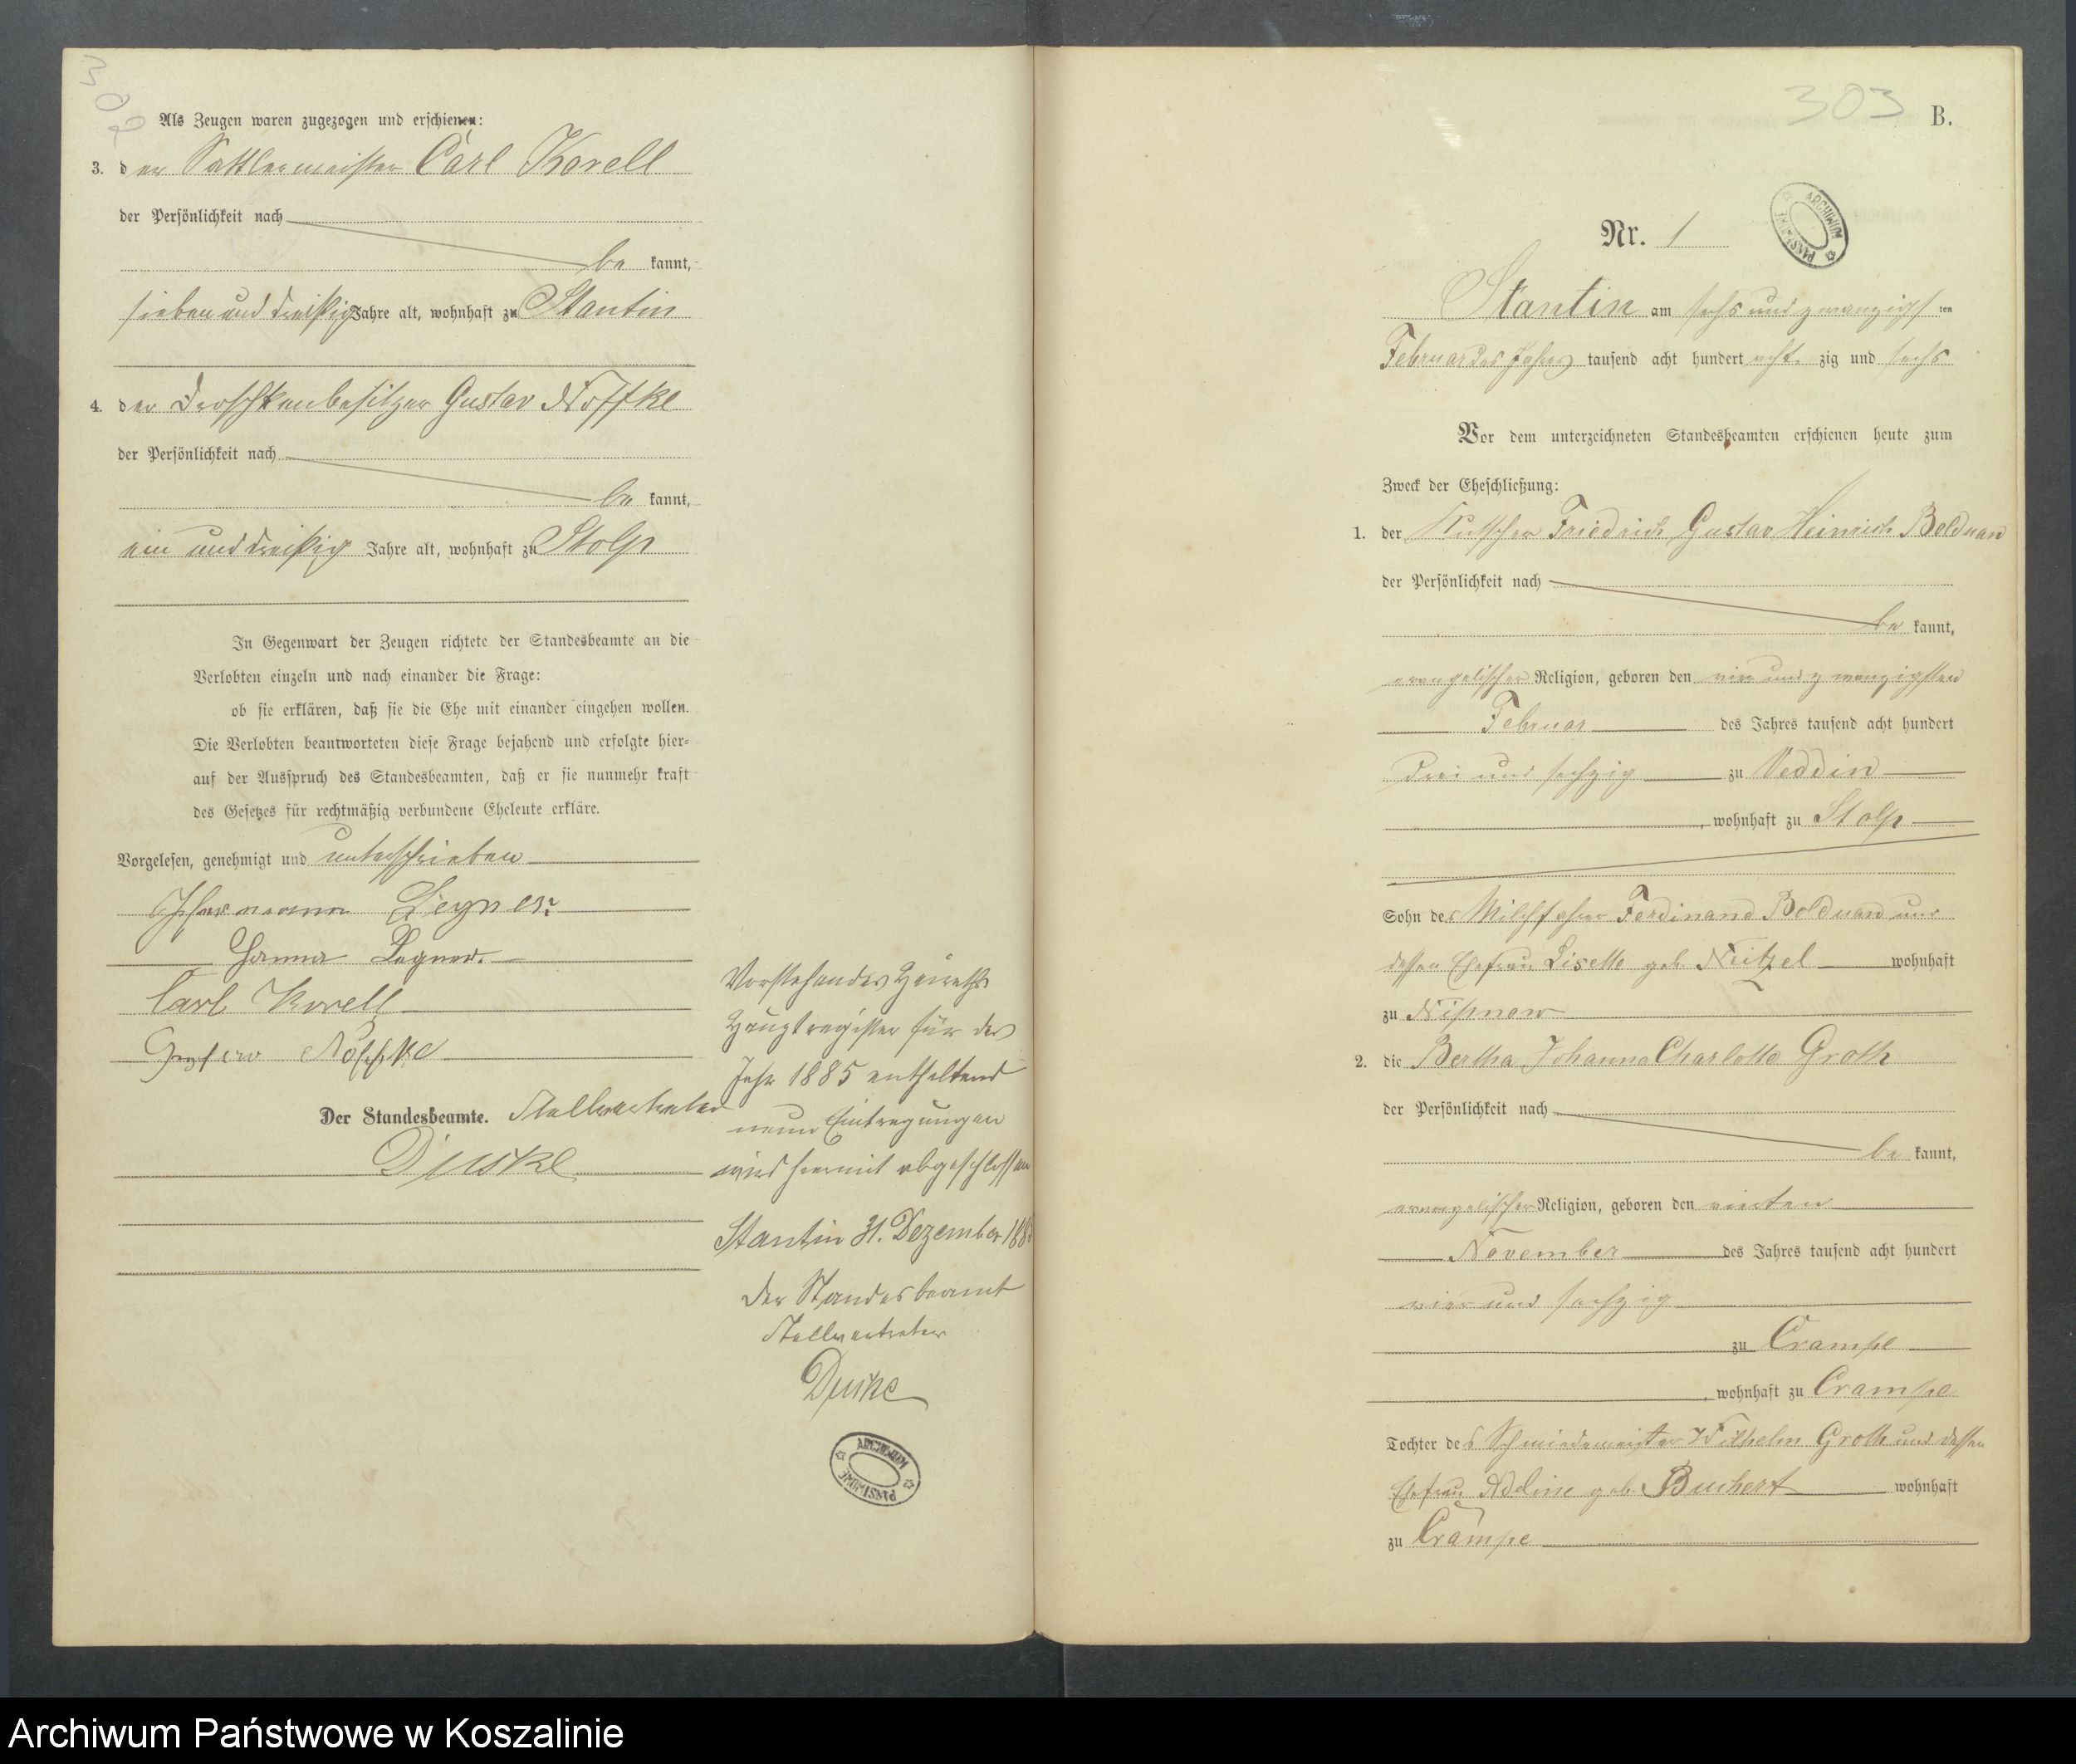 302
Als Zeugen waren zugezogen und erschienen:
3. der Sattlermeister Carl Korell
der Persönlichkeit nach
be kannt,
sieben und dreißig Jahre alt, wohnhaft zu Stantin
4. der Droschkenbesitzer Gustav Noffke
der Persönlichkeit nach
be kannt,
ein und dreißig Jahre alt, wohnhaft zu Stolp
In Gegenwart der Zeugen richtete der Standesbeamte an die
Verlobten einzeln und nach einander die Frage:
ob sie erklären, daß sie die Ehe mit einander eingehen wollen.
Die Verlobten beantworteten diese Frage bejahend und erfolgte hier-
auf der Ausspruch des Standesbeamten, daß er sie nunmehr kraft
des Gesetzes für rechtmäßig verbundene Eheleute erkläre.
Vorgelesen, genehmigt und unterschrieben
Carl Korell
Gustav Noffke
Der Standesbeamte. Stellvertreter
Vorstehendes Heiraths
Hauptregister für das
Jahr 1885 enthaltend
neun Eintragungen
wird hiermit abgeschlossen
Stantin 31. Dezember 188
Der Standesbeamte
Stellvertreter
ARCHIWUM PAŃSTWOWE
303
B.
Nr. 1
ARCHIWUM PAŃSTWOWE
Stantin am sechs und zwanzigsten
Februar des Jahres tausend acht hundert acht zig und sechs
Vor dem unterzeichneten Standesbeamten erschienen heute zum
Zweck der Eheschließung:
1. der Kutscher Friedrich Gustav Heinrich Bolduan
der Persönlichkeit nach
be kannt,
evangelischer Religion, geboren den vier und zwanzigsten
Februar des Jahres tausend acht hundert
drei und sechzig zu Veddin
, wohnhaft zu Stolp
Sohn des Milchfahrer Ferdinand Bolduan und
dessen Ehefrau Lisette geb. Neitzel wohnhaft
zu Nipnow
2. die Bertha Johanna Charlotte Groth
der Persönlichkeit nach
be kannt,
evangelischer Religion, geboren den
November des Jahres tausend acht hundert
vier und sechzig
zu Crampe
, wohnhaft zu Crampe
Tochter des Schmiedemeister Wilhelm Groth und dessen
Ehefrau geb. wohnhaft
zu Crampe
Archiwum Państwowe w Koszalinie